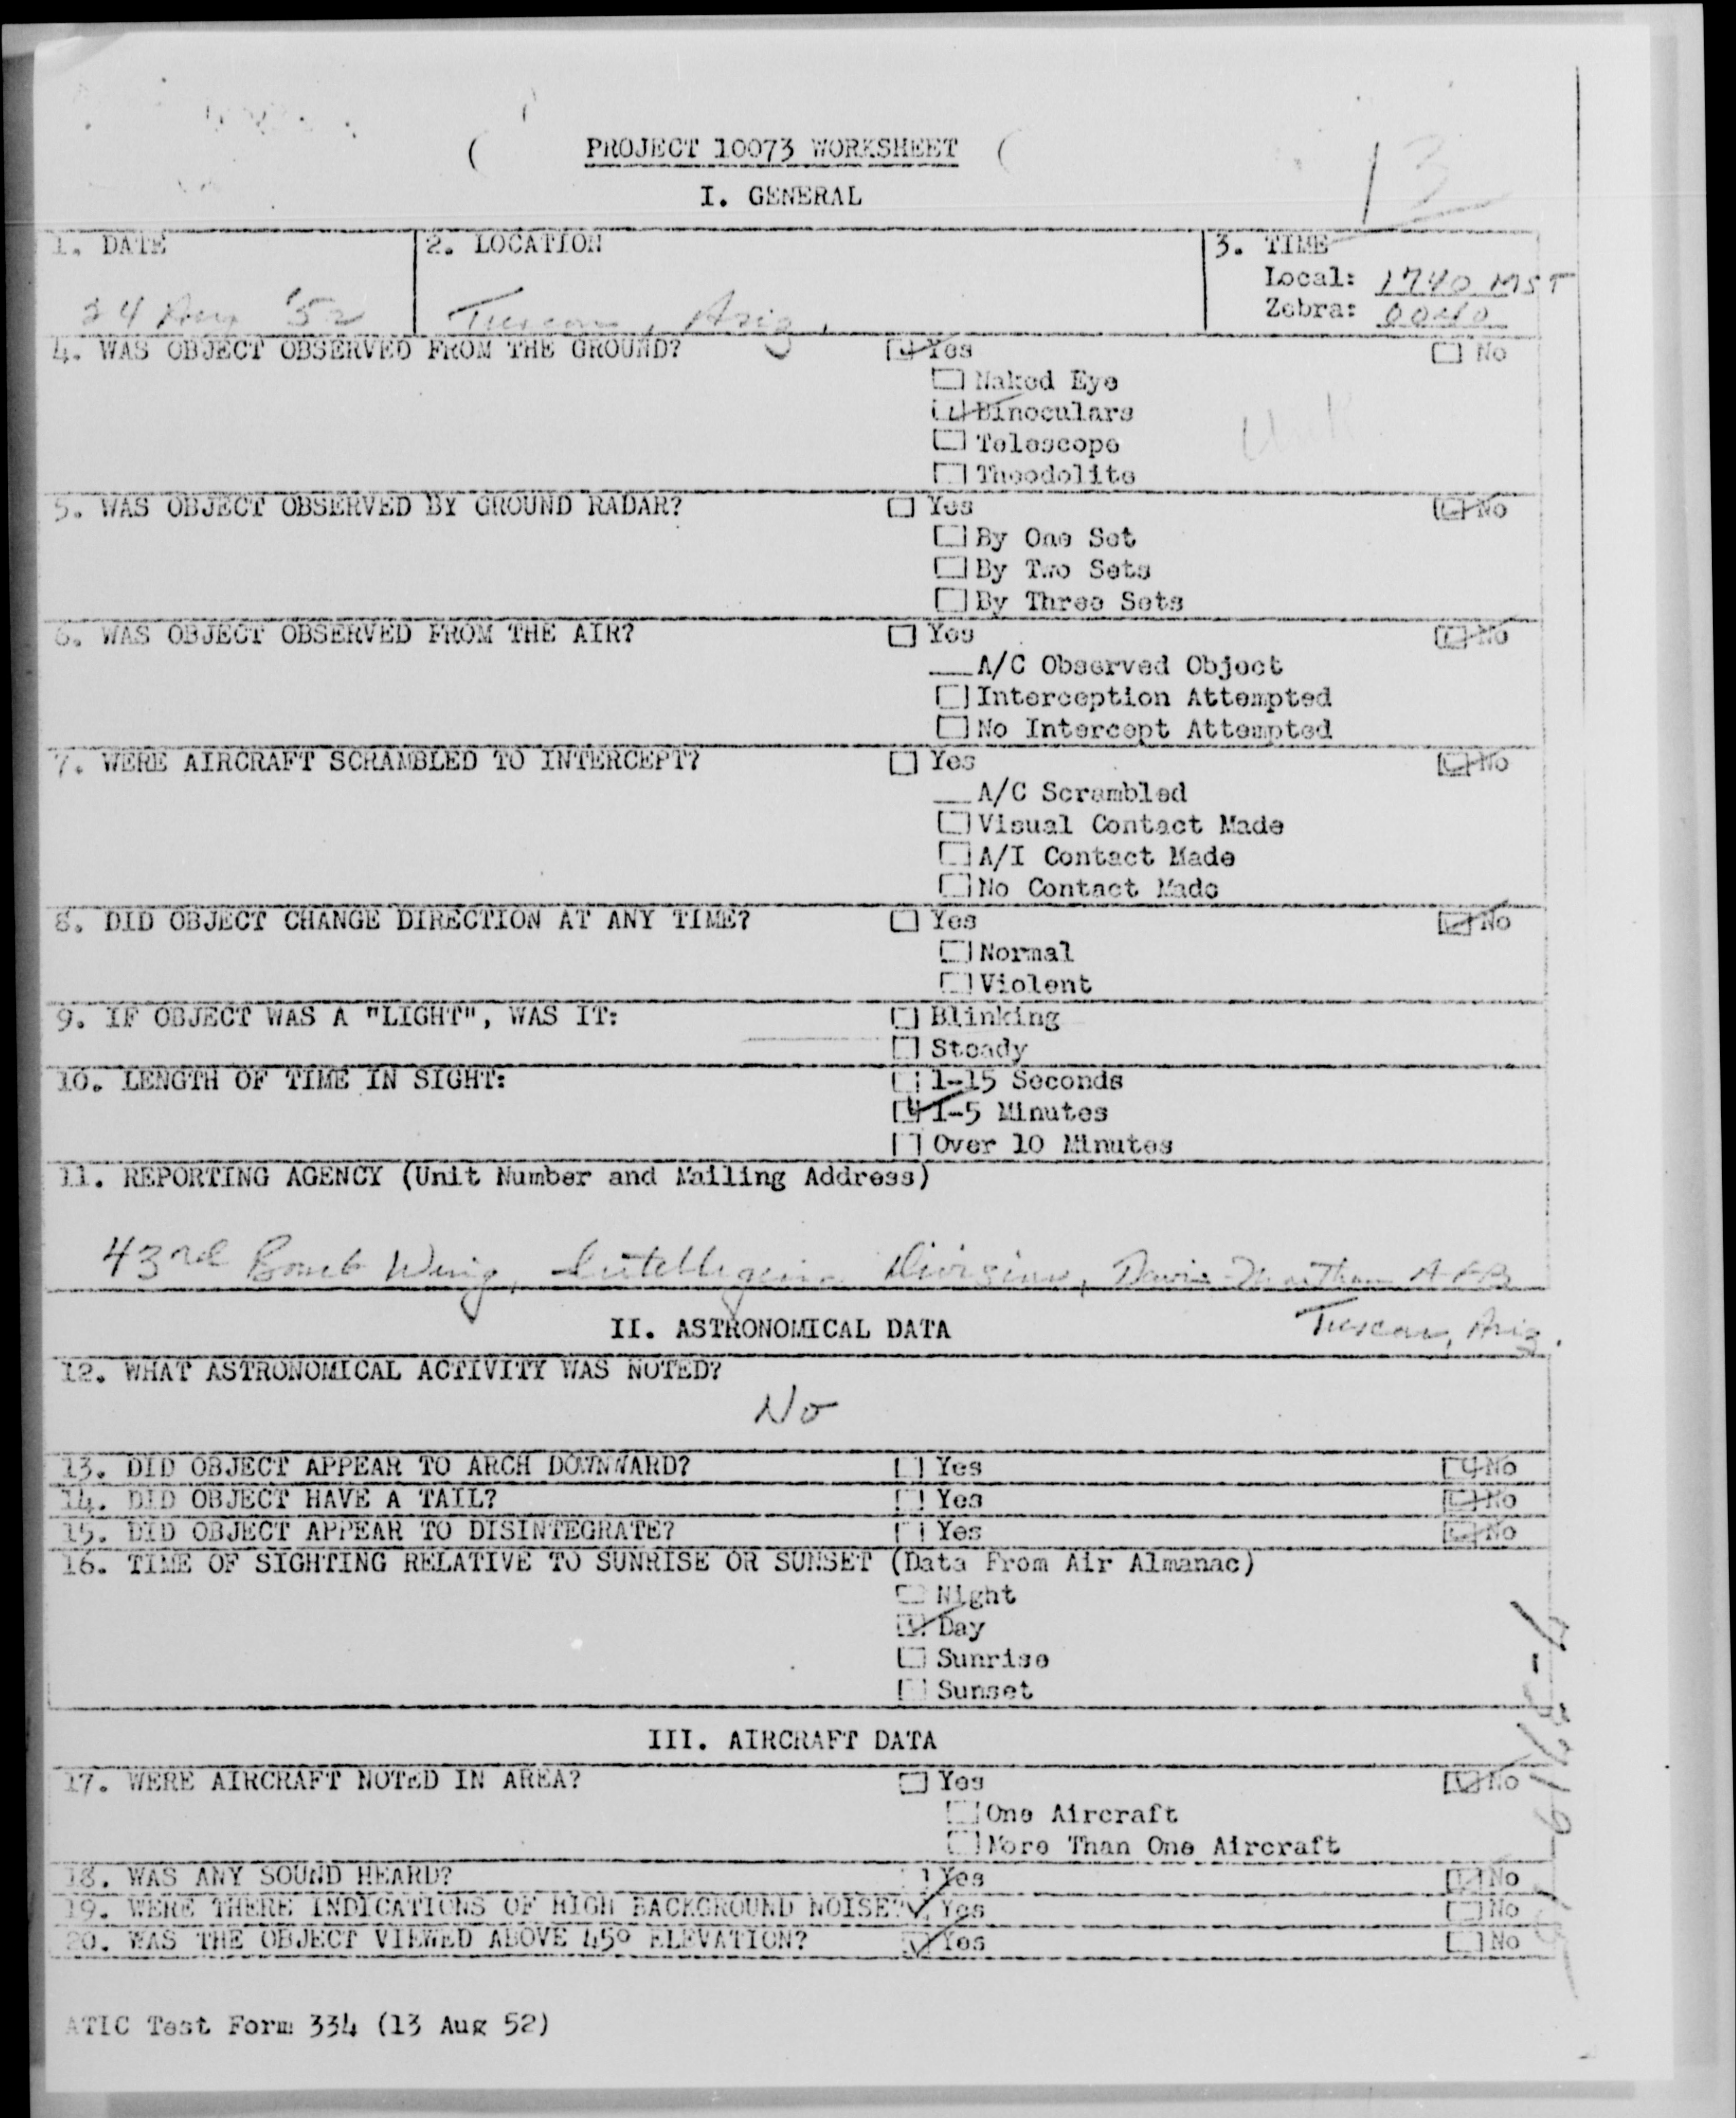 PROJECT 10073 WORKSHEET
13
I. GENERAL
1. DATE
24 Aug '52
2. LOCATION
Tucson, Ariz.
3. TIME
Local: 1740 MST
Zebra: 0040
4. WAS OBJECT OBSERVED FROM THE GROUND? Yes No
Naked Eye
Binoculars
Unk
Telescope
Theodolite
5. WAS OBJECT OBSERVED BY GROUND RADAR? Yes No
By One Set
By Two Sets
By Three Sets
6. WAS OBJECT OBSERVED FROM THE AIR? Yes No
A/C Observed Object
Interception Attempted
No Intercept Attempted
7. WERE AIRCRAFT SCRAMBLED TO INTERCEPT? Yes No
A/C Scrambled
Visual Contact Made
A/I Contact Made
No Contact Made
8. DID OBJECT CHANGE DIRECTION AT ANY TIME? Yes No
Normal
Violent
9. IF OBJECT WAS A "LIGHT", WAS IT: Blinking
Steady
10. LENGTH OF TIME IN SIGHT: 1-15 Seconds
1-5 Minutes
Over 10 Minutes
11. REPORTING AGENCY (Unit Number and Mailing Address)
43rd Bomb Wing, Intelligence Division, Davis-Monthan AFB
Tucson, Ariz.
II. ASTRONOMICAL DATA
12. WHAT ASTRONOMICAL ACTIVITY WAS NOTED?
No
13. DID OBJECT APPEAR TO ARCH DOWNWARD? Yes No
14. DID OBJECT HAVE A TAIL? Yes No
15. DID OBJECT APPEAR TO DISINTEGRATE? Yes No
16. TIME OF SIGHTING RELATIVE TO SUNRISE OR SUNSET (Data From Air Almanac)
Night
Day
Sunrise
Sunset
III. AIRCRAFT DATA
17. WERE AIRCRAFT NOTED IN AREA? Yes No
One Aircraft
More Than One Aircraft
18. WAS ANY SOUND HEARD? Yes No
19. WERE THERE INDICATIONS OF HIGH BACKGROUND NOISE? Yes No
20. WAS THE OBJECT VIEWED ABOVE 45° ELEVATION? Yes No
ATIC Test Form 334 (13 Aug 52)